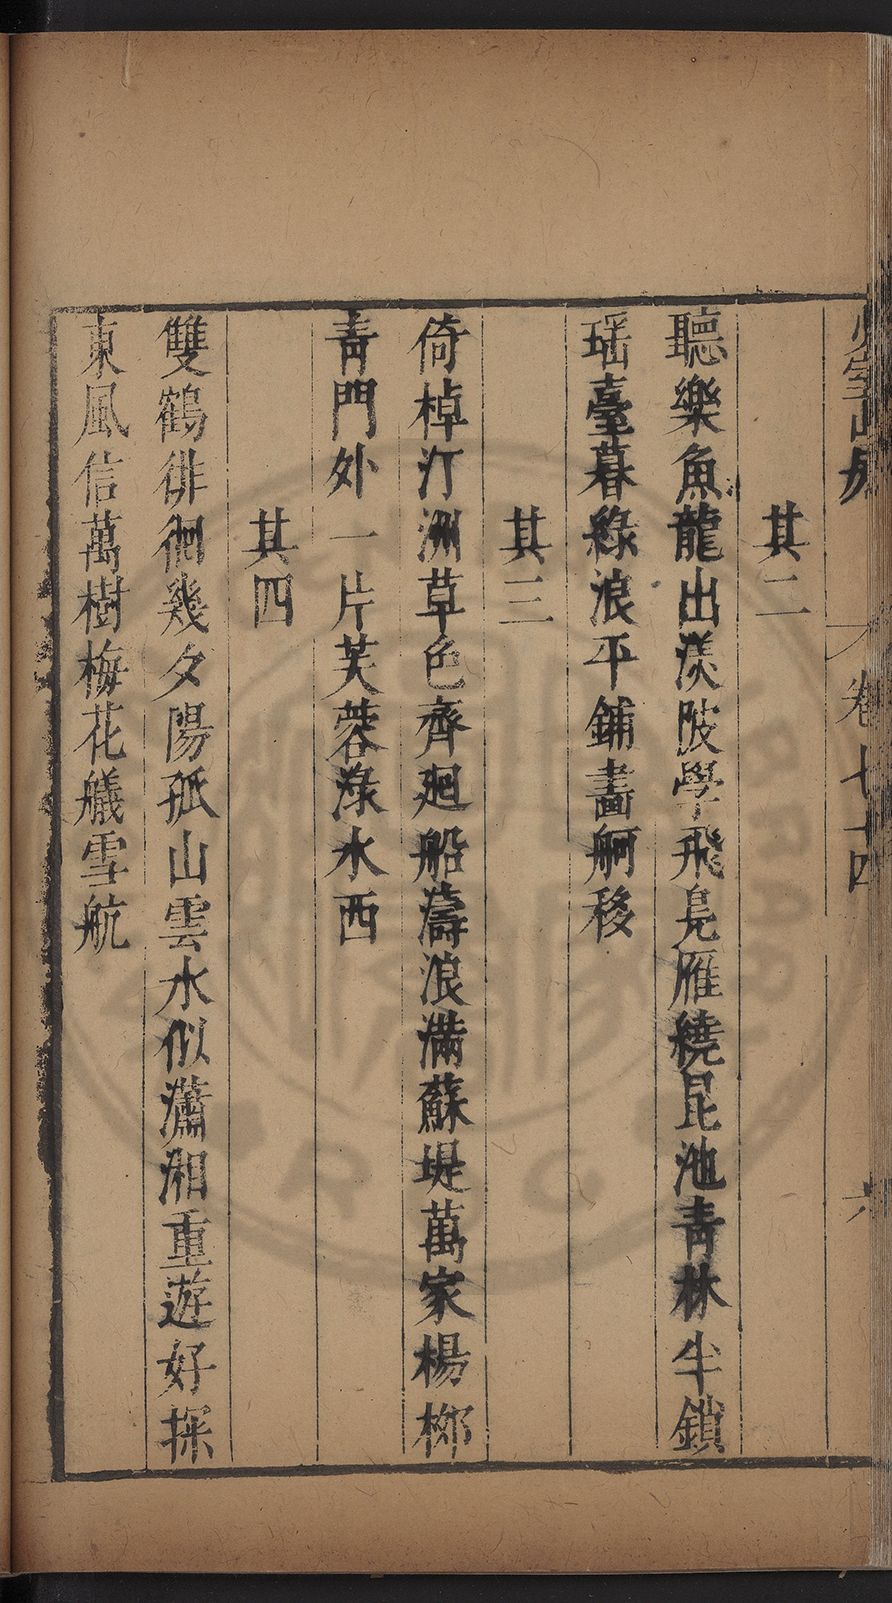 卷七十四
六
其二
聽樂魚龍出渼陂學飛鳧雁繞昆池青林半鎖
瑶臺暮綠浪平鋪畵舸移
其三
倚棹汀洲草色齊廻船濤浪滿蘇堤萬家楊栁
青門外一片芙蓉淥水西
其四
雙鶴徘徊幾夕陽孤山雲水似瀟湘重遊好探
東風信萬樹梅花艤雪航